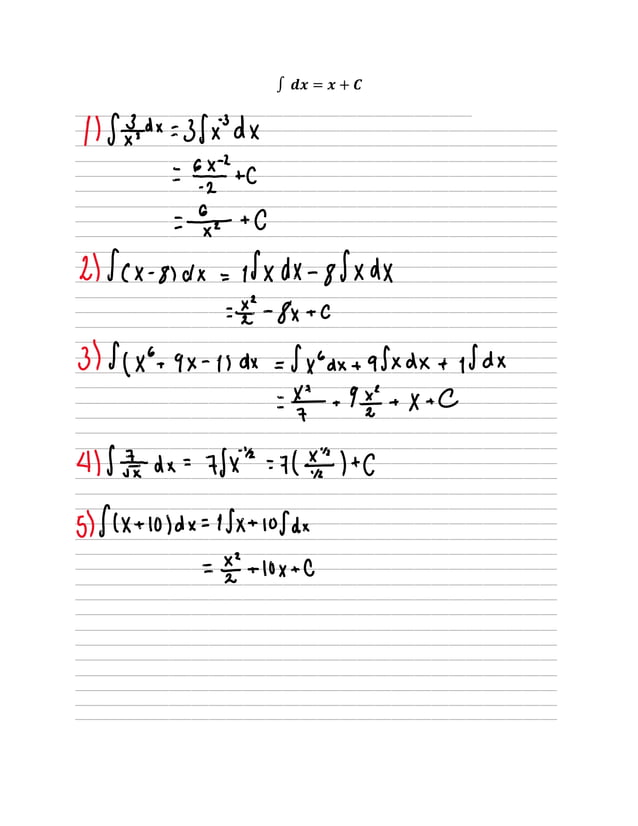 ∫ dx = x + C
1) ∫ 3/x³ dx = 3∫x⁻³ dx
= 6x⁻²/-2 + C
= 6/x² + C
2) ∫(x - 8) dx = 1∫x dx - 8∫x dx
= x²/2 - 8x + C
3) ∫(x⁶ + 9x - 1) dx = ∫x⁶ dx + 9∫x dx + 1∫dx
= x⁷/7 + 9 x²/2 + x + C
4) ∫ 7/√x dx = 7∫x⁻¹/² = 7(x¹/²/1/2) + C
5) ∫(x + 10) dx = 1∫x + 10∫dx
= x²/2 + 10x + C